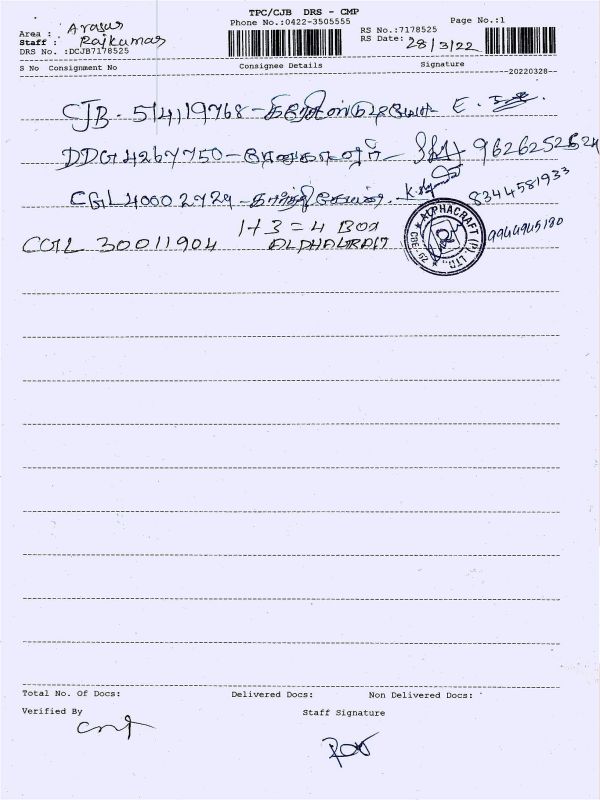 TPC/CJB DRS - CMP
Phone No.:0422-3505555
Page No.:1
Area : Arasur
Staff : Rajkumar
DRS No. :DCJB7178525
RS No.:7178525
RS Date: 28/3/22
S No Consignment No Consignee Details Signature
--20220328--
CJB - 514119768 - E.
DDG4267750 - 9626252624
CGL40002929 - 8344581933
1+3=4 Box 9944945180
CGL 30011904 ALPHACRAFT
ALPHACRAFT (P) LTD., CBE-29
Total No. Of Docs: Delivered Docs: Non Delivered Docs:
Verified By Staff Signature